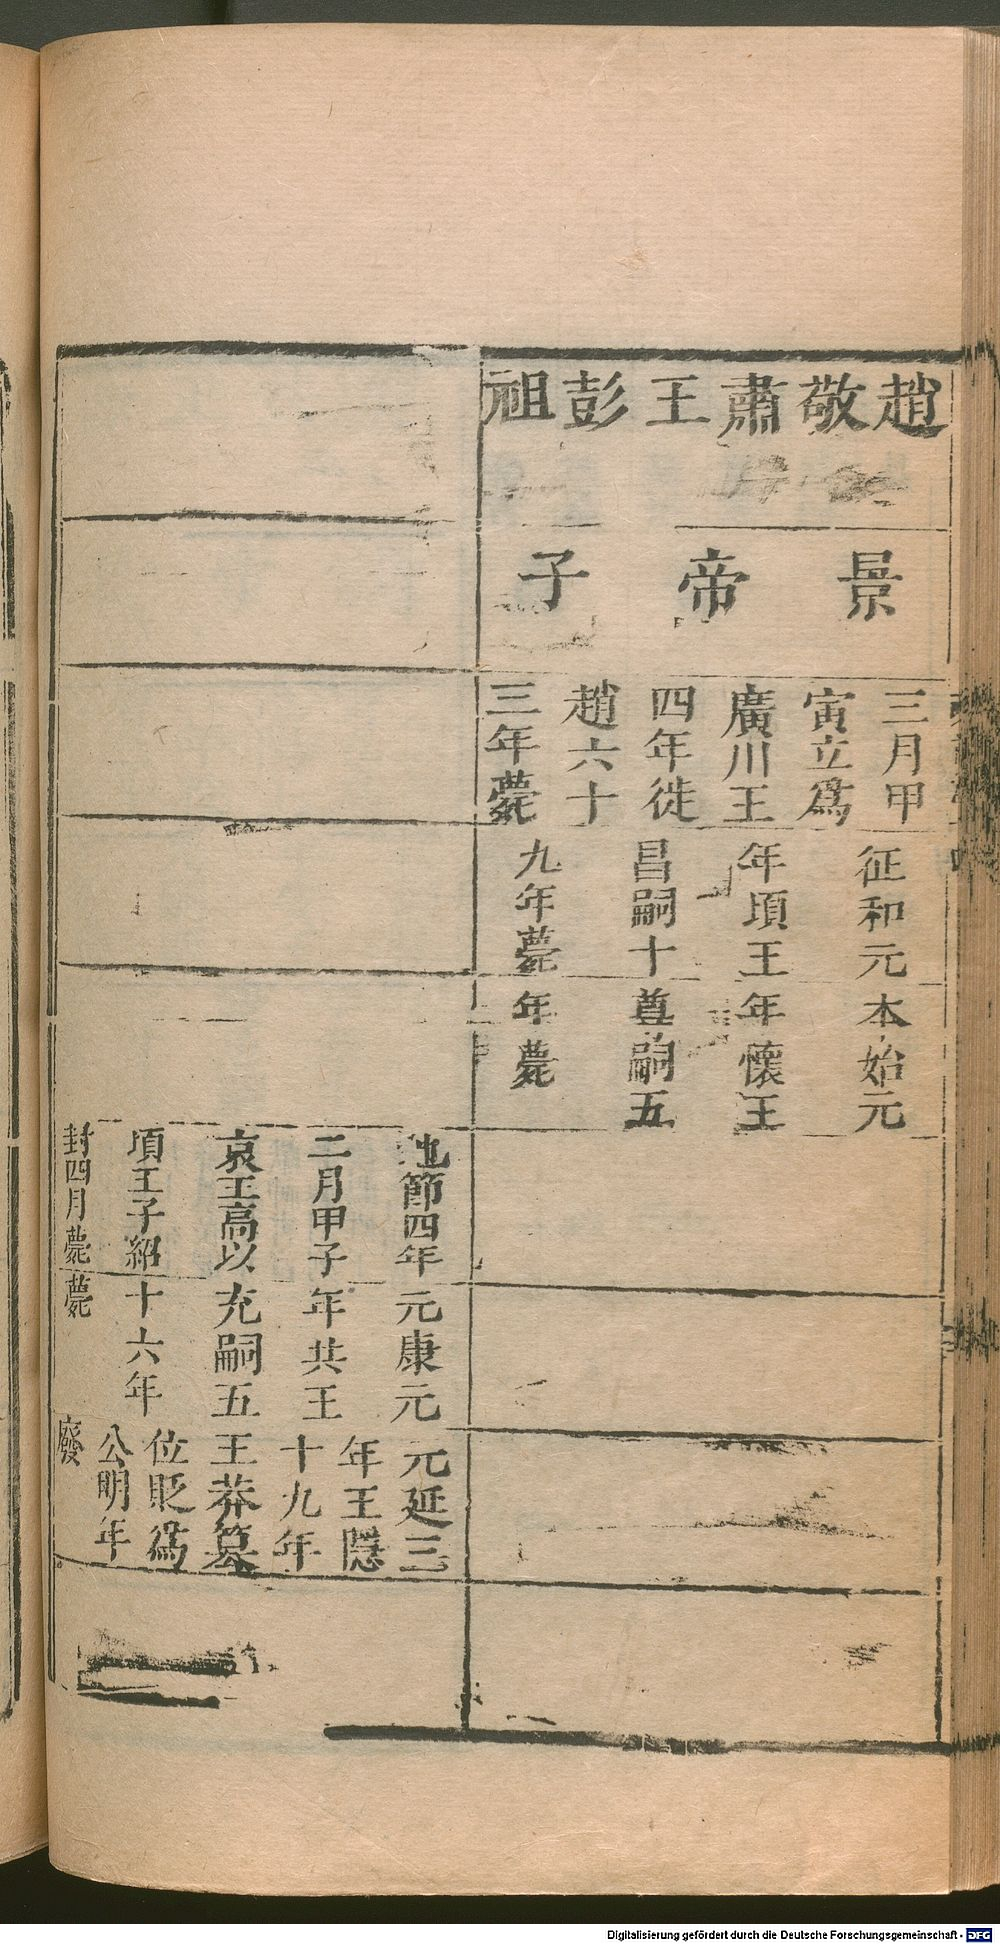 趙敬肅王彭祖
景帝子
三月甲
寅立爲
廣川王
四年徙
趙六十
三年薨
征和元
年頃王
昌嗣十
九年薨
本始元
年懷王
尊嗣五
年薨
地節四年
二月甲子
哀王高以
頃王子紹
封四月薨
元康元
年共王
充嗣五
十六年
薨
元延三
年王隱
十九年
王莽篡
位貶爲
公明年
廢
Digitalisierung gefördert durch die Deutsche Forschungsgemeinschaft - DFG